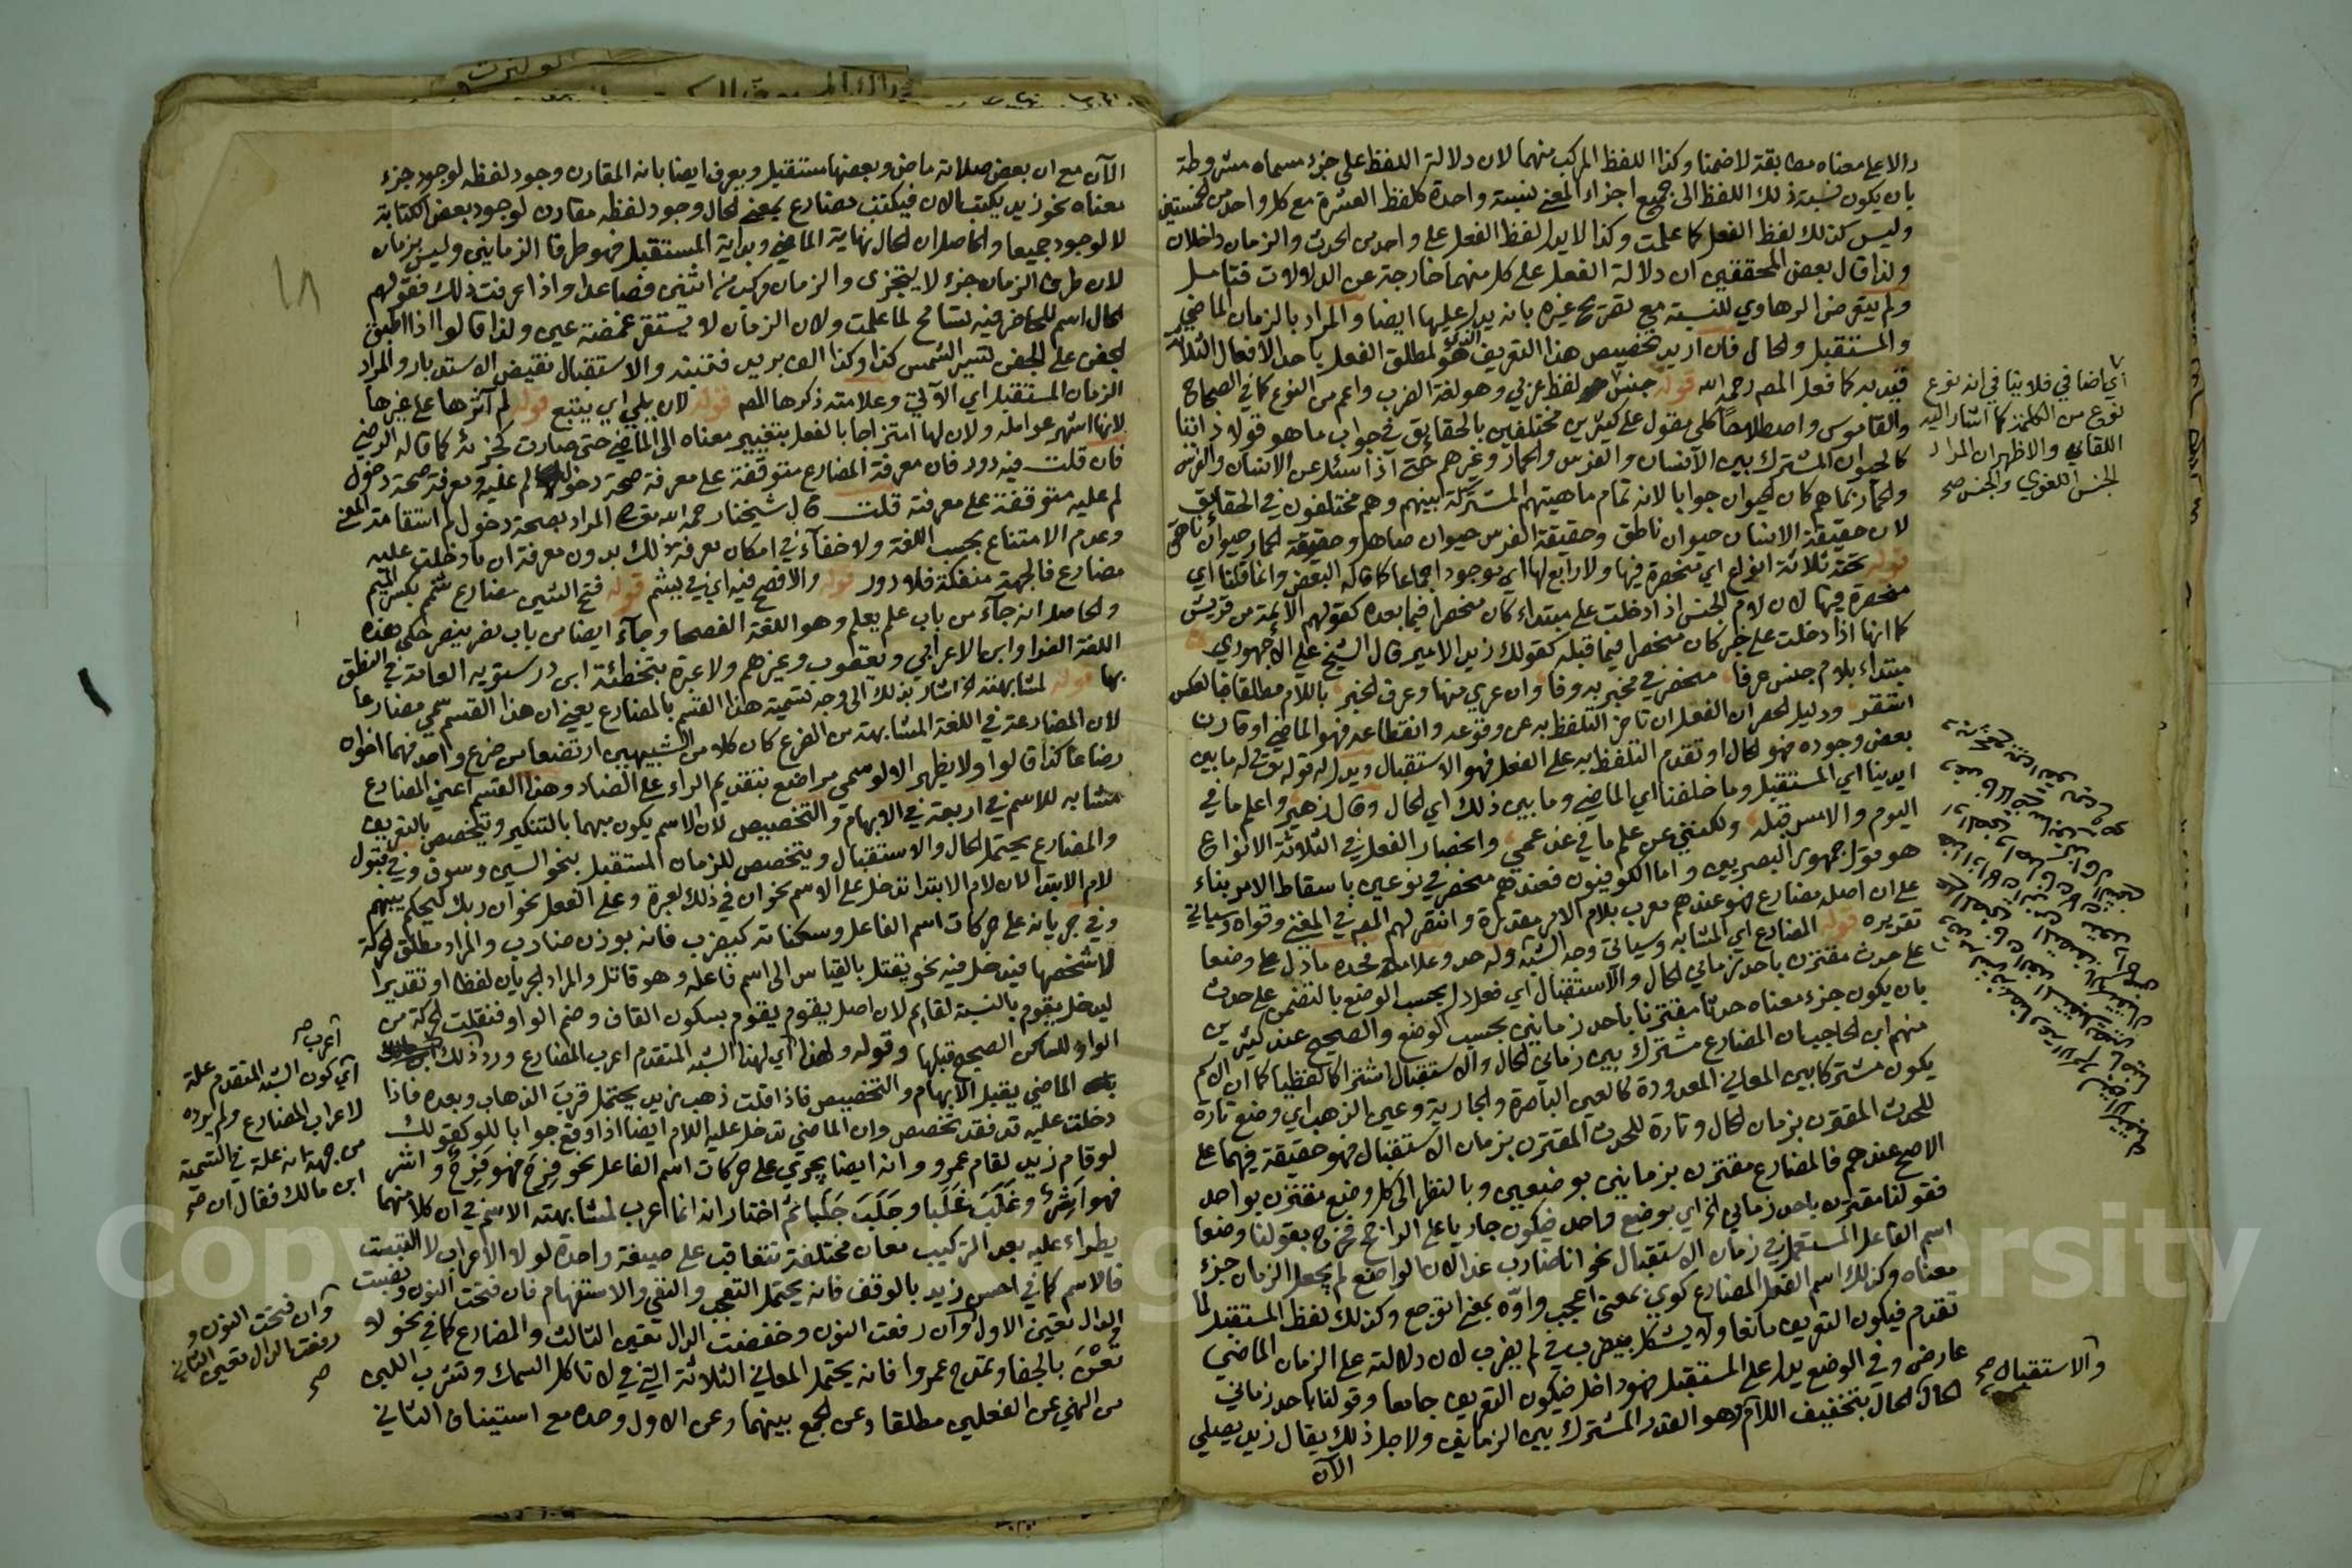 دالا على معناه مطابقة لا ضمنا وكذا اللفظ المركب منهما لان دلالة اللفظ على جزء مسماه مشروطة
بان يكون نسبة ذلك اللفظ الى جميع اجزاء المعنى نسبة واحدة كلفظ العشرة مع كل واحد من الخمستين
وليس كذلك لفظ الفعل كما علمت وكذا لا يدل لفظ الفعل على واحد من الحدث والزمان داخلان
ولذا قال بعض المحققين ان دلالة الفعل على كل منهما خارجة عن الدلالات فتامل
ولم يتعرض الرهاوي للنسبة مع تصريح غيره بانه يدل عليها ايضا والمراد بالزمان الماضي
والمستقبل والحال فان اريد تخصيص هذا التعريف الذي هو لمطلق الفعل باحد الافعال الثلاثة
قيد به كما فعل المصر رحمه الله قوله جنس لفظ عربي وهو لغة الضرب واعم من النوع كما في الصحاح
والقاموس واصطلاحا كلي مقول على كثيرين مختلفين بالحقايق في جواب ما هو قولا ذاتيا
كالحيوان المشترك بين الانسان والفرس والحمار وغيرهم حتى اذا سئل عن الانسان والفرس
والحمار بما هم كان الحيوان جوابا لانه تمام ماهيتهم المشتركة بينهم وهم مختلفون في الحقايق
لان حقيقة الانسان حيوان ناطق وحقيقة الفرس حيوان صاهل وحقيقة الحمار حيوان ناهق
قوله تحته ثلاثة انواع اي منحصرة فيها ولا رابع لها اي موجود اجماعا كما قاله البعض وانما قلنا اي
منحصرة فيها لان لام الجنس اذا دخلت على مبتداء كان منحصرا فيما بعده كقولهم الايمة من قريش
كما انها اذا دخلت على خبر كان منحصرا فيما قبله كقولك زيد الامير قال الشيخ علي الاجهوري
مبتداء بلام جنس عرفا منحصر في مخبر به وفا وان عري منها وعرف الخبر باللام مطلقا فبالعكس
استقر ودليل الحصر ان الفعل ان تاخر التلفظ به عن وقوعه وانقطاعه فهو الماضي او قارن
بعض وجوده فهو الحال او تقدم التلفظ به على الفعل فهو الاستقبال ويدل له قوله تع له ما بين
ايدينا اي المستقبل وما خلفنا اي الماضي وما بين ذلك اي الحال وقال زهير واعلم ما في
اليوم والامس قبله ولكنني عن علم ما في غد عمي وانحصار الفعل في الثلاثة الانواع
هو قول جمهور البصريين واما الكوفيون فعندهم منحصر في نوعين باسقاط الامر بناء
على ان اصله مضارع فهو عندهم معرب بلام الامر مقدرة وانتصر لهم المصر في المغني وقواه وسياتي
تقديره قوله المضارع اي المشابه وسياتي وجه الشبه وله حد وعلامة فحده ما دل على وضعا
على حدث مقترن باحد زماني الحال والاستقبال اي فعل دل بحسب الوضع بالتضمن على حدث
بان يكون جزء معناه حدثا مقترنا باحد زمانين بحسب الوضع والصحيح عند كثيرين
منهم ابن الحاجب ان المضارع مشترك بين زماني الحال والاستقبال اشتراكا لفظيا كما ان الاسم
يكون مشتركا بين المعاني المعدودة كالعين الباصرة والجارية وعين الذهب اي وضع تارة
للحدث المقترن بزمان الحال وتارة للحدث المقترن بزمان الاستقبال فهو حقيقة فيهما على
الاصح عندهم فالمضارع مقترن بزمانين بوضعين وبالنظر الى كل وضع مقترن بواحد
فقولنا مقترن باحد زماني الخ اي بوضع واحد فيكون جاريا على الراجح فخرج بقولنا وضعا
اسم الفاعل المستعمل في زمان الاستقبال نحو انا ضارب غدا لان الواضع لم يجعل الزمان جزء
معناه وكذلك اسم الفعل المضارع كوي بمعنى اعجب واوه بمعنى اتوجع وكذلك لفظ المستقبل لما
تقدم فيكون التعريف مانعا ولا يشكل بيضرب في لم يضرب لان دلالته على الزمان الماضي
عارض وفي الوضع يدل على المستقبل فهو داخل فيكون التعريف جامعا وقولنا باحد زماني
الحال الحال بتخفيف اللام وهو القدر المشترك بين الزمانين ولاجل ذلك يقال زيد يصلي
الآن
اي اضافي فلا ينافي انه نوع
نوع من الكلمة كما اشار اليه
اللقاني والاظهر ان المراد
الجنس اللغوي والجنس صح
والاستقبال صح
الآن مع ان بعض صلاته ماض وبعضها مستقبل ويعرف ايضا بانه المقارن وجود لفظه لوجود جزء
معناه نحو زيد يكتب الان فيكتب مضارع بمعنى الحال وجود لفظه مقارن لوجود بعض الكتابة
لا لوجود جميعا والحاصل ان الحال نهاية الماضي وبداية المستقبل فهو طرفا الزمانين وليس بزمان
لان طرف الزمان جزء لا يتجزى والزمان مركب من اثنين فصاعدا واذا عرفت ذلك فقولهم
الحال اسم للحاضر فيه تسامح لما علمت ولان الزمان لا يستقر غمضة عين ولذا قالوا اذا طبق
الجفن على الجفن لتسير الشمس كذا وكذا الف بريد فتنبه والاستقبال نقيض الاستدبار والمراد
الزمان المستقبل اي الآتي وعلامته ذكرها المصر قوله لان يلي اي يتبع قوله لم آثرها على غيرها
لانها اشهر عوامله ولان لها امتزاجا بالفعل بتغيير معناه الى الماضي حتى صارت كجزئه كما قاله الرضي
فان قلت فيه دور فان معرفة المضارع متوقفة على معرفة صحة دخول لم عليه ومعرفة صحة دخول
لم عليه متوقفة على معرفته قلت قال شيخنا رحمه الله تعالى المراد بصحة دخول لم استقامة المعنى
وعدم الامتناع بحسب اللغة ولا خفاء في امكان معرفة ذلك بدون معرفة ان ما دخلت عليه
مضارع فالجهة منفكة فلا دور قوله والافصح فيه اي في يشم قوله فتح الشين مضارع شمم بكسر الميم
والحاصل انه جاء من باب علم يعلم وهو اللغة الفصحا وجاء ايضا من باب نصر ينصر حكى هذه
اللغة الفرا وابن الاعرابي ويعقوب وغيرهم ولا عبرة بتخطئة ابن درستويه العامة في النطق
بها قوله لمشابهته الخ اشار بذلك الى وجه تسمية هذا القسم بالمضارع يعني ان هذا القسم سمي مضارعا
لان المضارعة في اللغة المشابهة من الضرع كان كلا من الشبيهين ارتضعا من ضرع واحد فهما اخوان
رضاعا كذا قالوا ولا يظهر الا لو سمي مراضع بتقديم الراء على الضاد وهذا القسم اعني المضارع
مشابه للاسم في اربعة في الابهام والتخصيص لان الاسم يكون مبهما بالتنكير ويتخصص بالتعريف
والمضارع يحتمل الحال والاستقبال ويتخصص للزمان المستقبل بنحو السين وسوف وفي قبول
لام الابتدا لان لام الابتدا تدخل على الاسم نحو ان في ذلك لعبرة وعلى الفعل نحو ان ربك ليحكم بينهم
وفي جريانه على حركات اسم الفاعل وسكناته كيضرب فانه بوزن ضارب والمراد مطلق الحركة
لا شخصها فيدخل فيه نحو يقتل بالقياس الى اسم فاعله وهو قاتل والمراد الجريان لفظا او تقديرا
ليدخل يقوم بالنسبة لقايم لان اصل يقوم يقوم بسكون القاف وضم الواو فنقلت الحركة من
الواو للساكن الصحيح قبلها وقوله ولهذا اي لهذا الشبه المتقدم اعرب المضارع ورد ذلك
الماضي يقبل الابهام والتخصيص فاذا قلت ذهب زيد يحتمل قرب الذهاب وبعده فاذا
دخلت عليه قد فقد تخصص وان الماضي تدخل عليه اللام ايضا اذا وقع جوابا للو كقولك
لو قام زيد لقام عمرو وانه ايضا يجري على حركات اسم الفاعل نحو فرح فهو فرح واشر
فهو اشر وغلب غلبا وجلب جلبا ثم اختار انه انما اعرب لمشابهته الاسم في ان كلا منهما
يطراء عليه بعد التركيب معان مختلفة تتعاقب على صيغة واحدة لولا الاعراب لالتبست
فالاسم كما في احسن زيد بالوقف فانه يحتمل التعجب والنفي والاستفهام فان فتحت النون ونصبت
الدال تعين الاول وان رفعت النون وخفضت الدال تعين الثالث والمضارع كما في نحو لا
تعن بالجفا وتمدح عمروا فانه يحتمل المعاني الثلاثة التي في لا تاكل السمك وتشرب اللبن
من النهي عن الفعلين مطلقا وعن الجمع بينهما وعن الاول وحده مع استيناف الثاني
١٨
اعرب صح
اي كون الشبه المتقدم علة
لاعراب المضارع ولم يرده
من جهة انه علة في التسمية
ابن مالك فقال ان صح
وان فتحت النون و
رفعت الدال تعين الثاني
صح